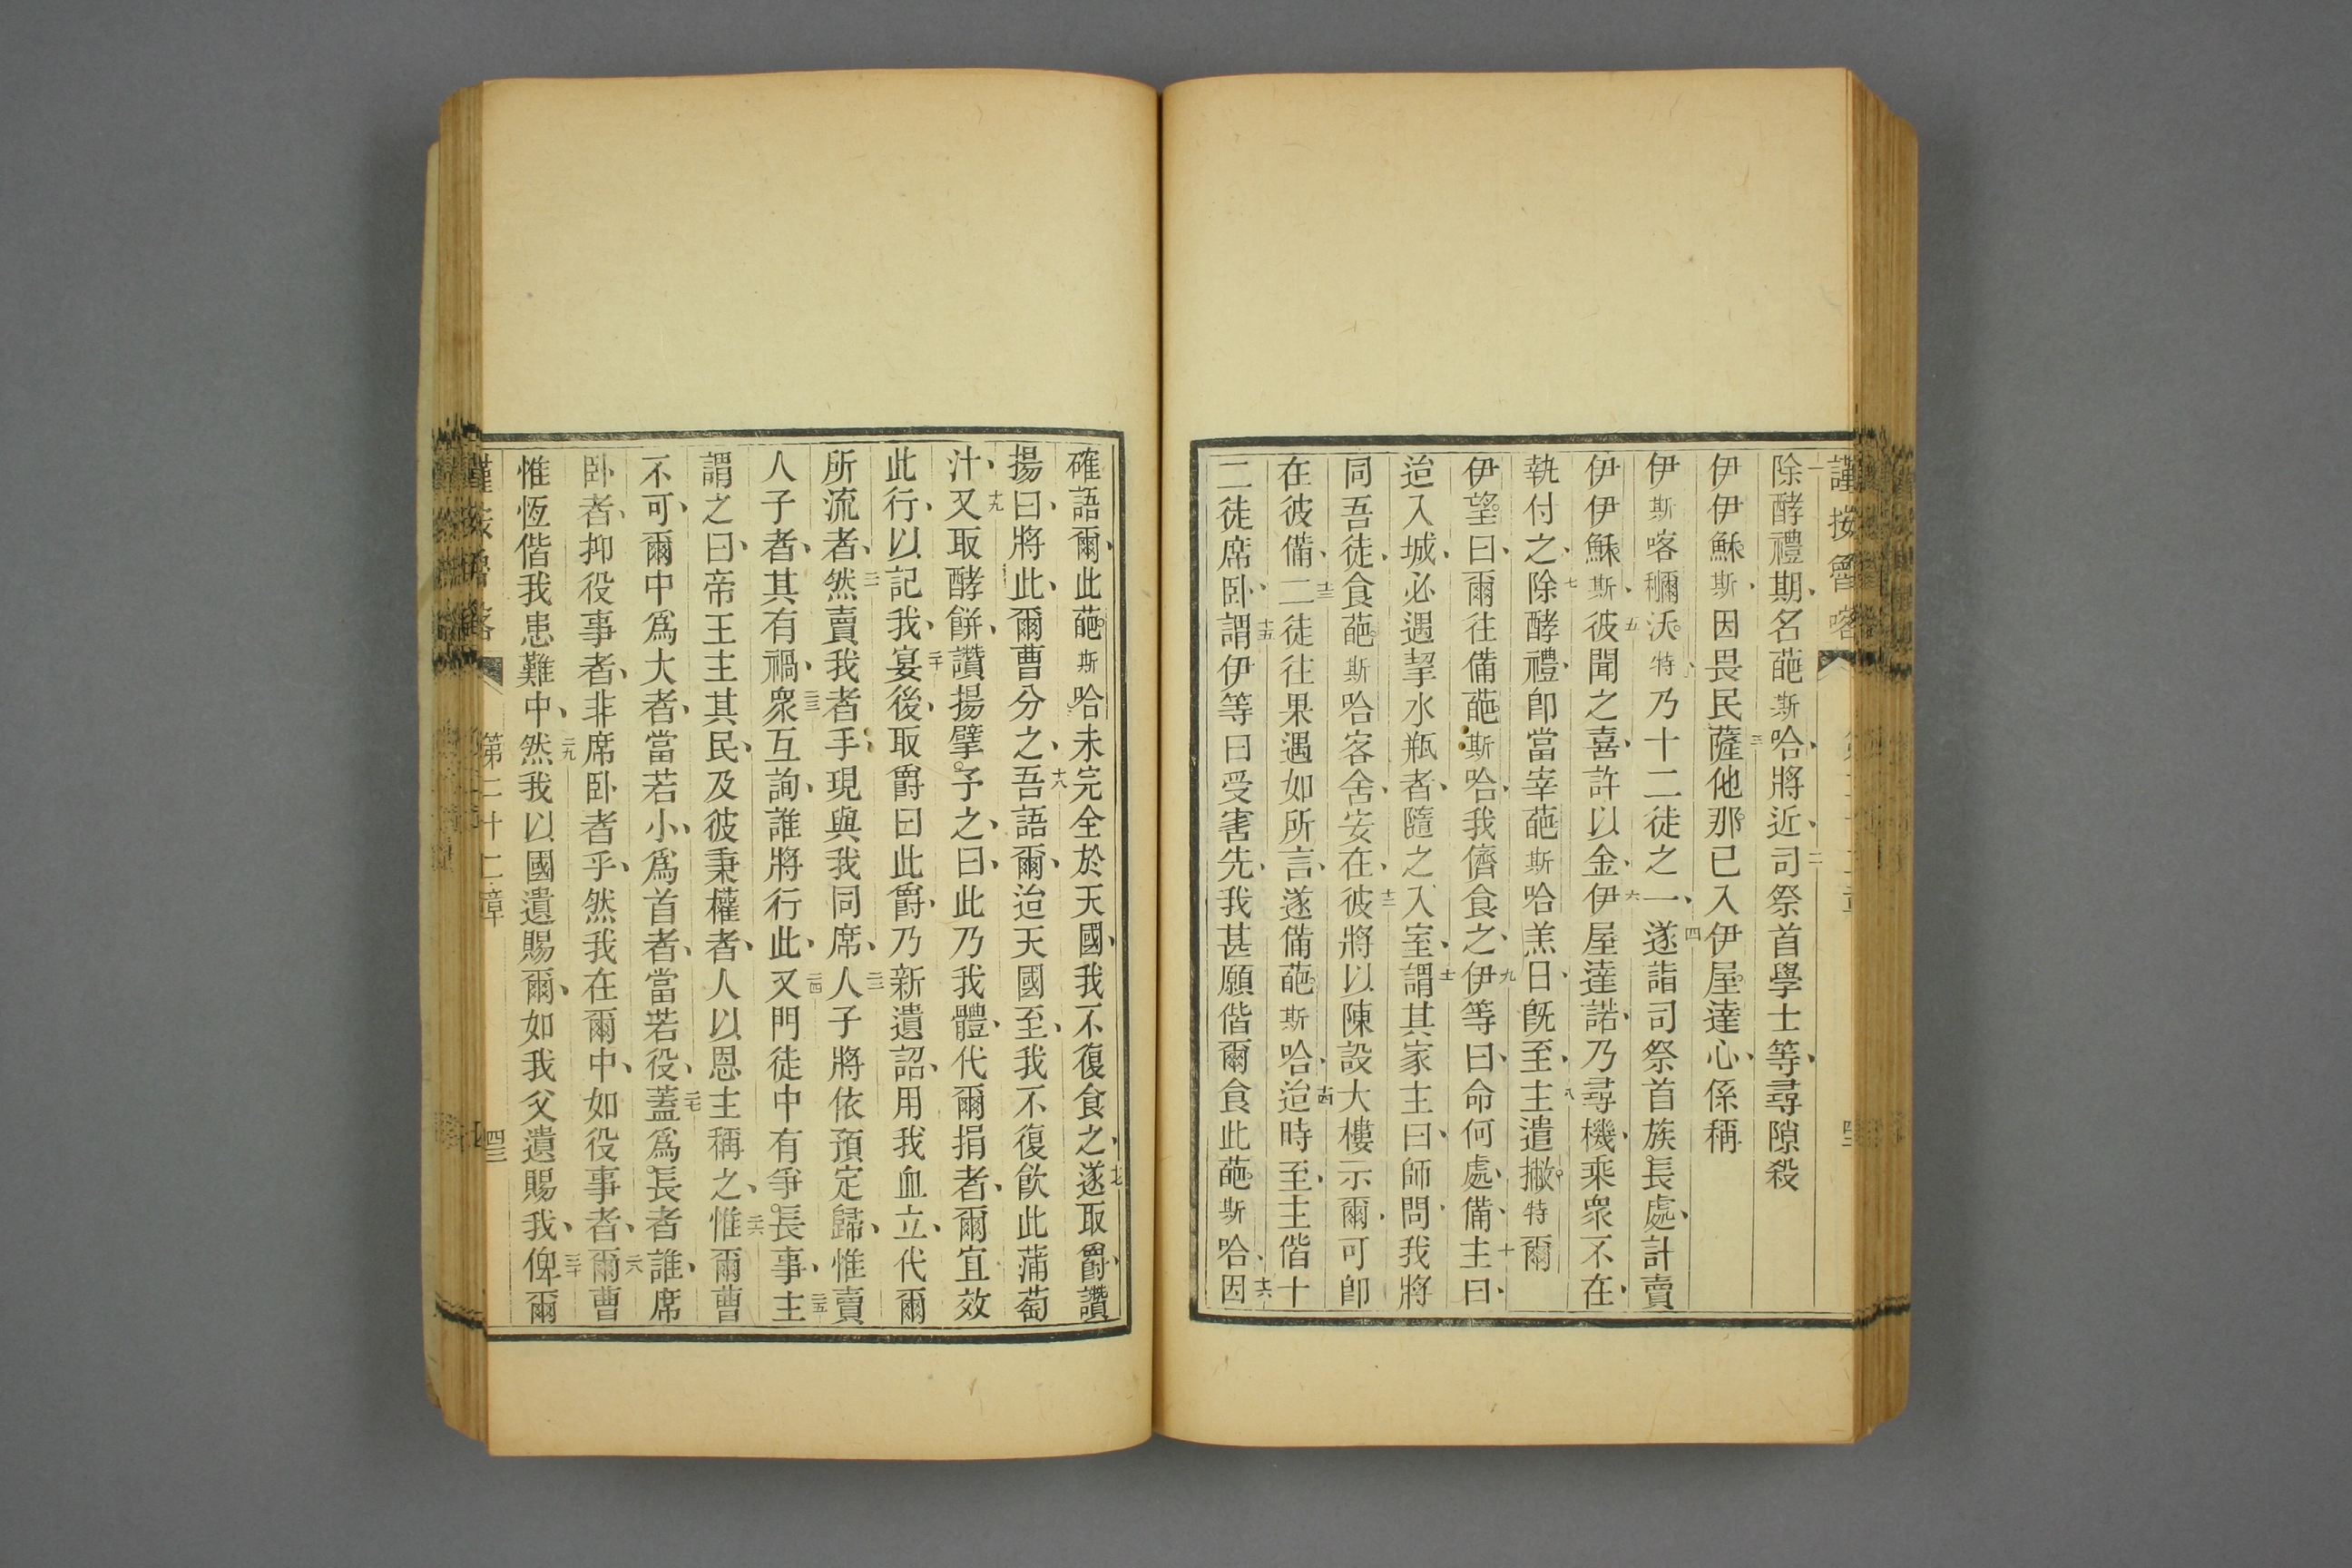 謹按魯喀
一除酵禮期、名葩斯哈、將近、二司祭首學士等、尋隙殺
伊伊穌斯、因畏民、三薩他那已入伊屋達心、係稱
伊斯喀穪沃特、乃十二徒之一、四遂詣司祭首族長處、計賣
伊伊穌斯、五彼聞之喜、許以金、六伊屋達諾、乃尋機、乘衆不在、
執付之、七除酵禮、即當宰葩斯哈羔日、既至、八主遣撇特爾
伊望、曰、爾往備葩斯哈、我儕食之、九伊等曰、命何處備、十主曰、
迨入城、必遇挈水瓶者、隨之入室、十一謂其家主曰、師問、我將
同吾徒、食葩斯哈客舍安在、十二彼將以陳設大樓示爾、可即
在彼備、十三二徒往果遇如所言、遂備葩斯哈、十四迨時至、主偕十
二徒席卧、十五謂伊等曰受害先、我甚願偕爾食此葩斯哈、十六因
確語爾、此葩斯哈未完全於天國、我不復食之、十七遂取爵、讚
揚曰、將此、爾曹分之、十八吾語爾、迨天國至、我不復飲此蒲萄
汁、十九又取酵餅、讚揚擘予之、曰、此乃我體、代爾捐者、爾宜效
此行、以記我、二十宴後、取爵曰此爵、乃新遺詔、用我血立、代爾
所流者、二一然賣我者手現與我同席、二二人子將依預定歸、惟賣
人子者、其有禍、二三衆互詢、誰將行此、二四又門徒中有爭長事、二五主
謂之曰、帝王主其民、及彼秉權者、人以恩主稱之、二六惟爾曹
不可、爾中爲大者、當若小、爲首者、當若役、二七蓋爲長者誰、席
卧者、抑役事者、非席卧者乎、然我在爾中、如役事者、二八爾曹
惟恆偕我患難中、二九然我以國遺賜爾、如我父遺賜我、三十俾爾
第二十二章
四三